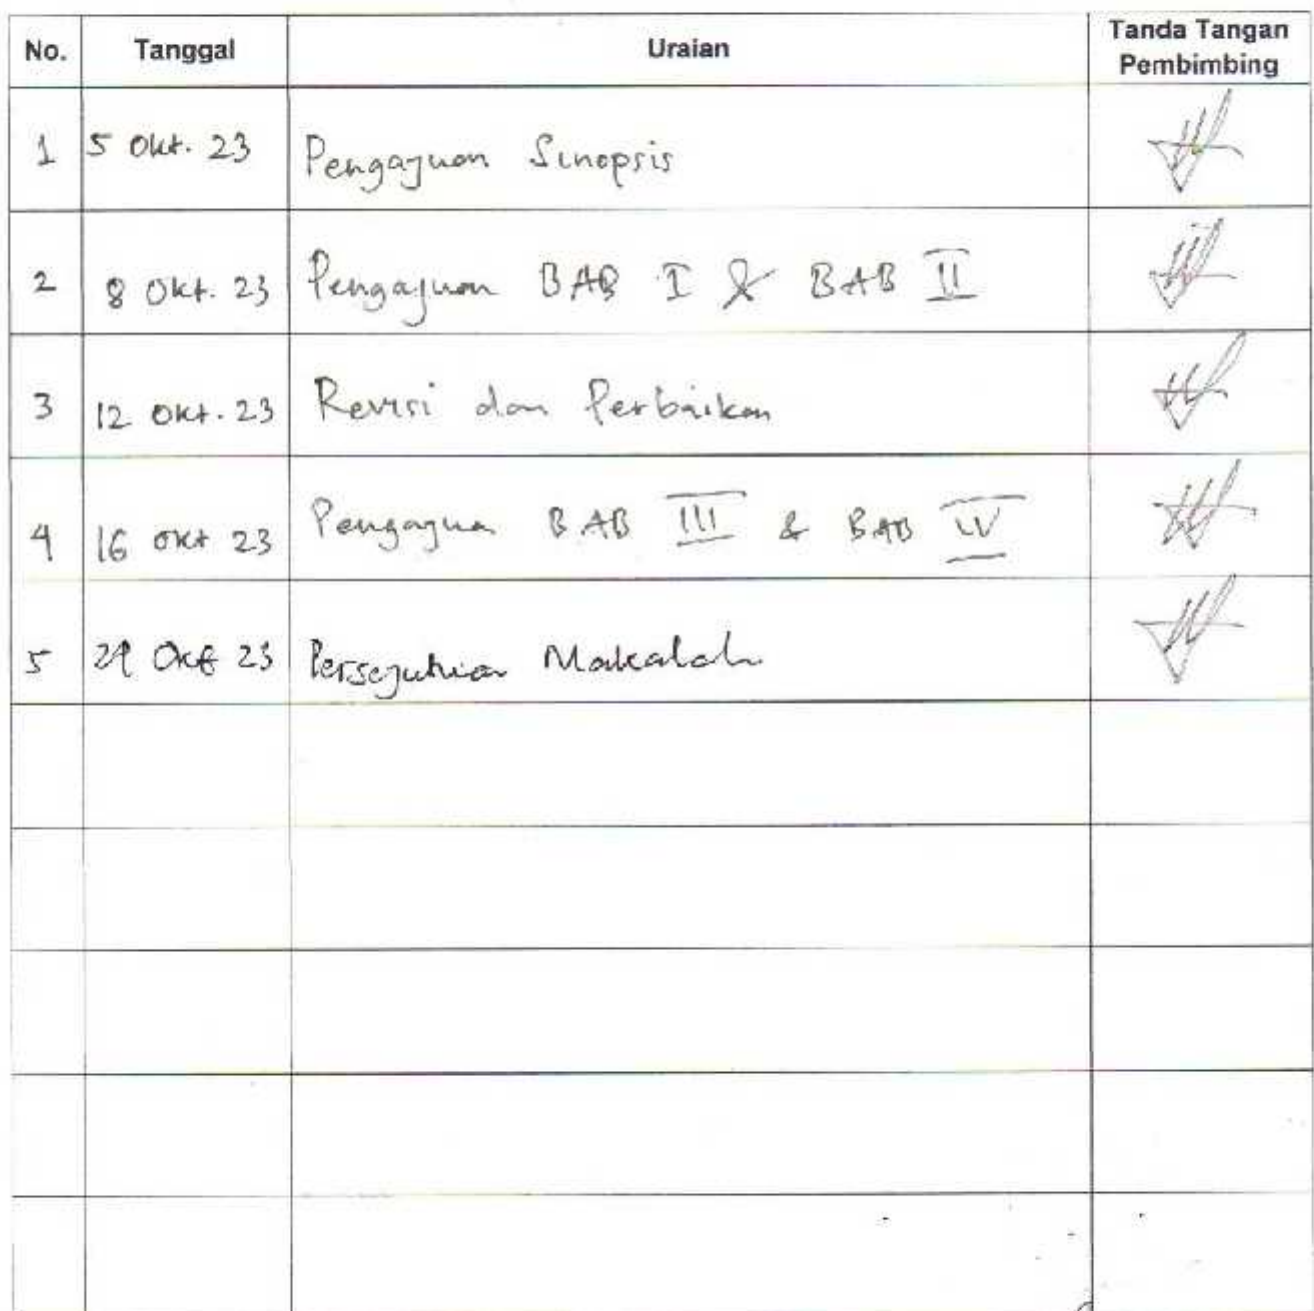 No. Tanggal Uraian Tanda Tangan Pembimbing
1 5 Okt. 23 Pengajuan Sinopsis
2 8 Okt. 23 Pengajuan BAB I & BAB II
3 12 Okt. 23 Revisi dan Perbaikan
4 16 Okt 23 Pengajua BAB III & BAB IV
5 Okt 23 Persejutuian Makalah